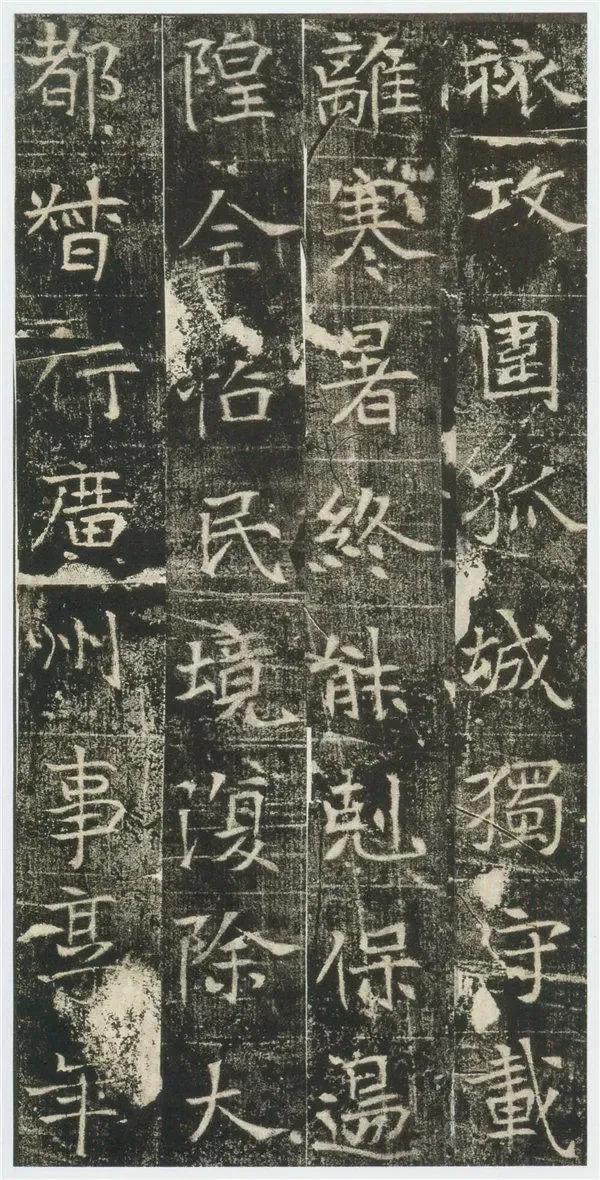 旅攻圍孤城獨守載
離寒暑終能剋保邊
隍全怡民境復除大
都督行廣州事享年